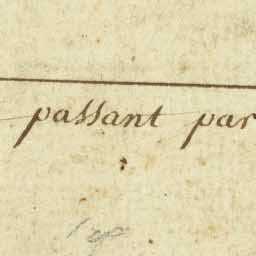 passant par